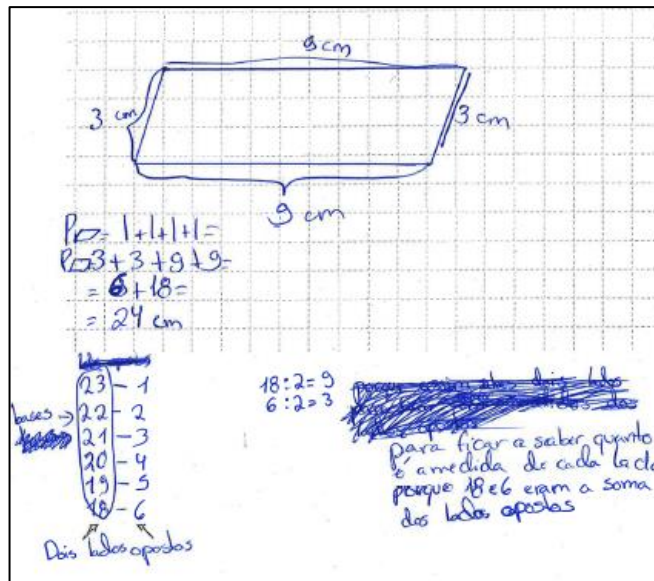 9 cm
3 cm
3 cm
9 cm
P▱= l+l+l+l=
P▱3+3+9+9=
= 6+18=
= 24 cm
23-1
bases → 22-2
21-3
20-4
19-5
18-6
Dois lados opostos
18:2=9
6:2=3
para ficar a saber quanto
é a medida de cada lado
porque 18 e 6 eram a soma
dos lados opostos